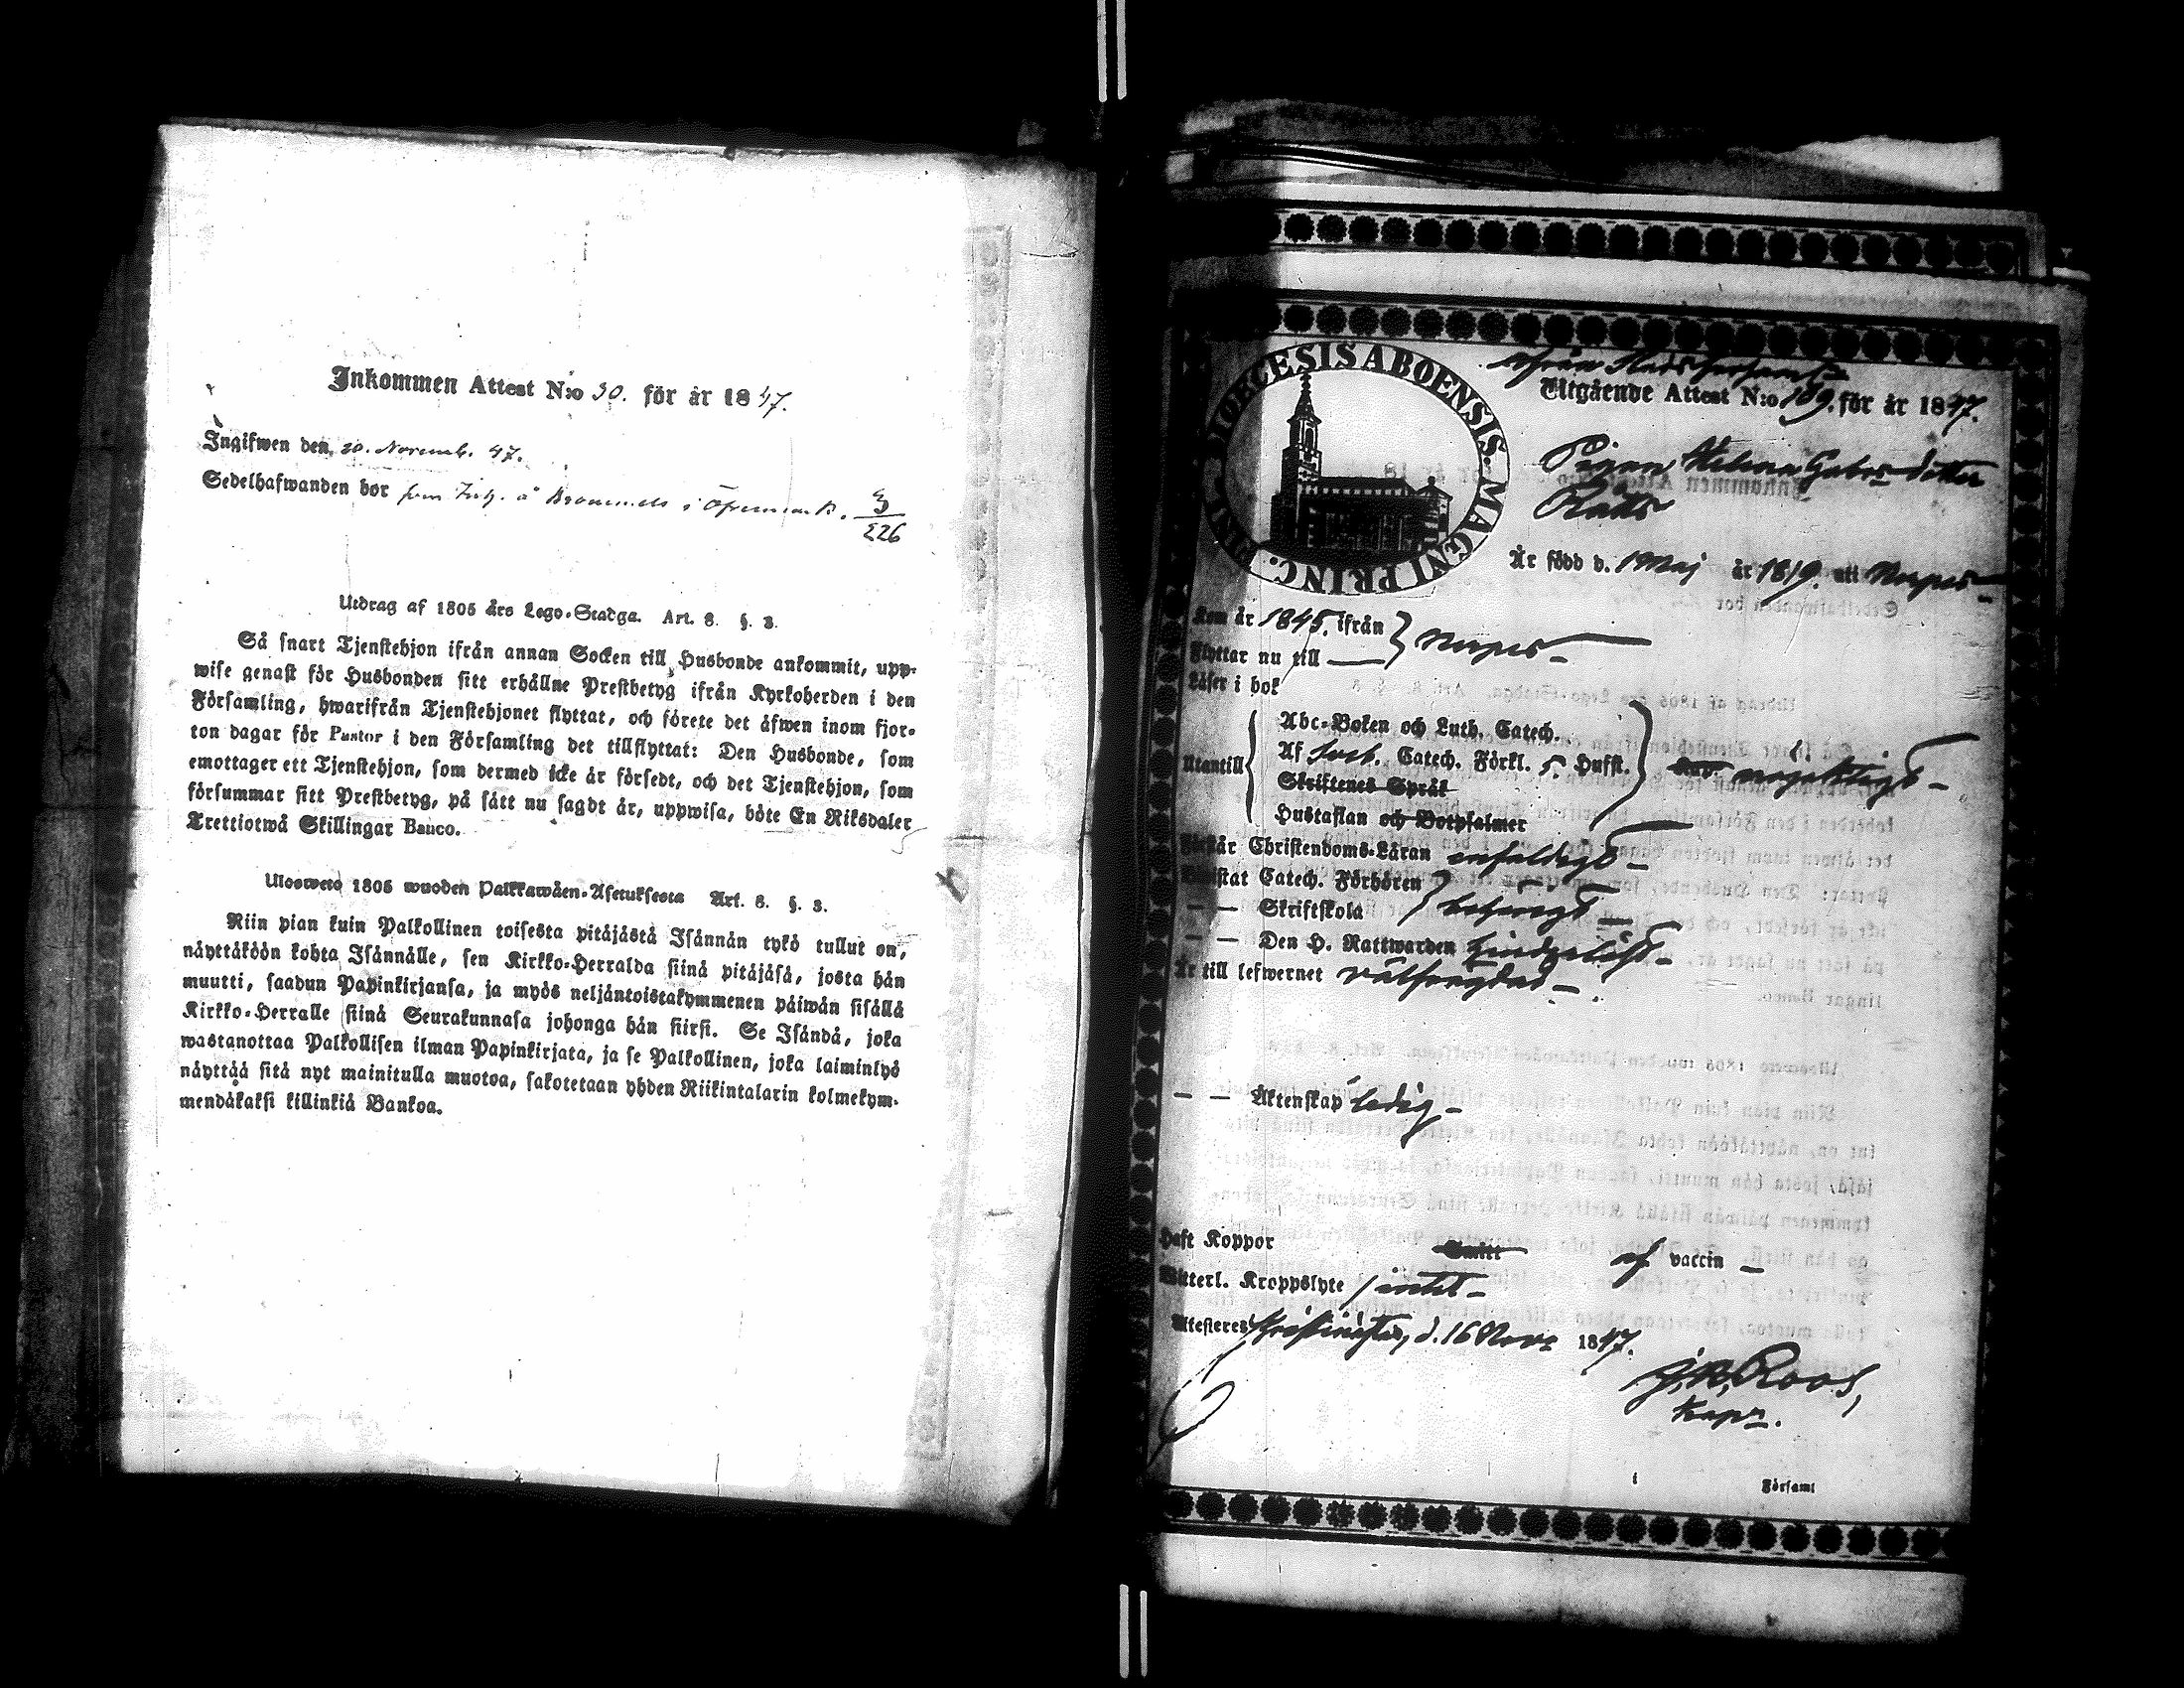 Inkommen Attest N:o 30. för år 1847.
Ingifwen den 20. Novemb. 47.
Sedelhafwanden bor som å i 3
226
Utdrag af 1805 års Lego-Stadga. Art. 8. §. 3.
Så snart Tjenstehjon ifrån annan Socken till Husbonde ankommit, upp-
wise genast för Husbonden sitt erhållne Prestbetyg ifrån Kyrkoherden i den
Församling, hwarifrån Tjenstehjonet flyttat, och förete det äfwen inom fjor-
ton dagar för Pastor i den Församling det tillflyttat: Den Husbonde, som
emottager ett Tjenstehjon, som dermed icke är försedt, och det Tjenstehjon, som
försummar sitt Prestbetyg, på sätt nu sagdt är, uppwisa, böte En Riksdaler
Trettiotwå Skillingar Banco.
Ulosweto 1805 wuoden Palkkawäen-Asetuksesta Art. 8. §. 3.
Niin pian kuin Palkollinen toisesta pitäjästä Isännän tykö tullut on,
näyttäköön kohta Isännälle, sen Kirkko-Herralda siinä pitäjäsä, josta hän
muutti, saadun Papinkirjansa, ja myös neljäntoistakymmenen päiwän sisällä
Kirkko-Herralle siinä Seurakunnasa johonga hän siirsi. Se Isändä, joka
wastanottaa Palkollisen ilman Papinkirjata, ja se Palkollinen, joka laiminlyö
näyttää sitä nyt mainitulla muotoa, sakotetaan yhden Riikintalarin kolmekym-
mendäkaksi killinkiä Bankoa.
DIOECESIS ABOENSIS. MAGNI PRINC. FINL.
ifrån Stadsförsaml
Utgående Attest N:o 109. för år 1847.
Pigan Helena Gabrs dotter
Rätts
Är född d. 1 Maj år 1819. uti Nerpes
Kom år 1845. ifrån
Flyttar nu till } Nerpes
Läser i bok
Abc-Boken och Luth. Catech.
Utantill Af Catech. Förkl. 5. Hufst. nöjaktigt
Skriftenes Språk
Hustaflan och Botpsalmer
Förstår Christendoms-Läran enfaldigt
Bewistat Catech. Förhören
— — Skriftskola } behörigt
— — Den H. Nattwarden hinderlöst
Är till lefwernet välfrägdad
— — Äktenskap ledig
Haft Koppor Smitt af vaccin
Witterl. Kroppslyte intet
Attesteres Kristinestad, d. 16 Novr 1847.
J. W. Roos,
Kapn.
i Församl